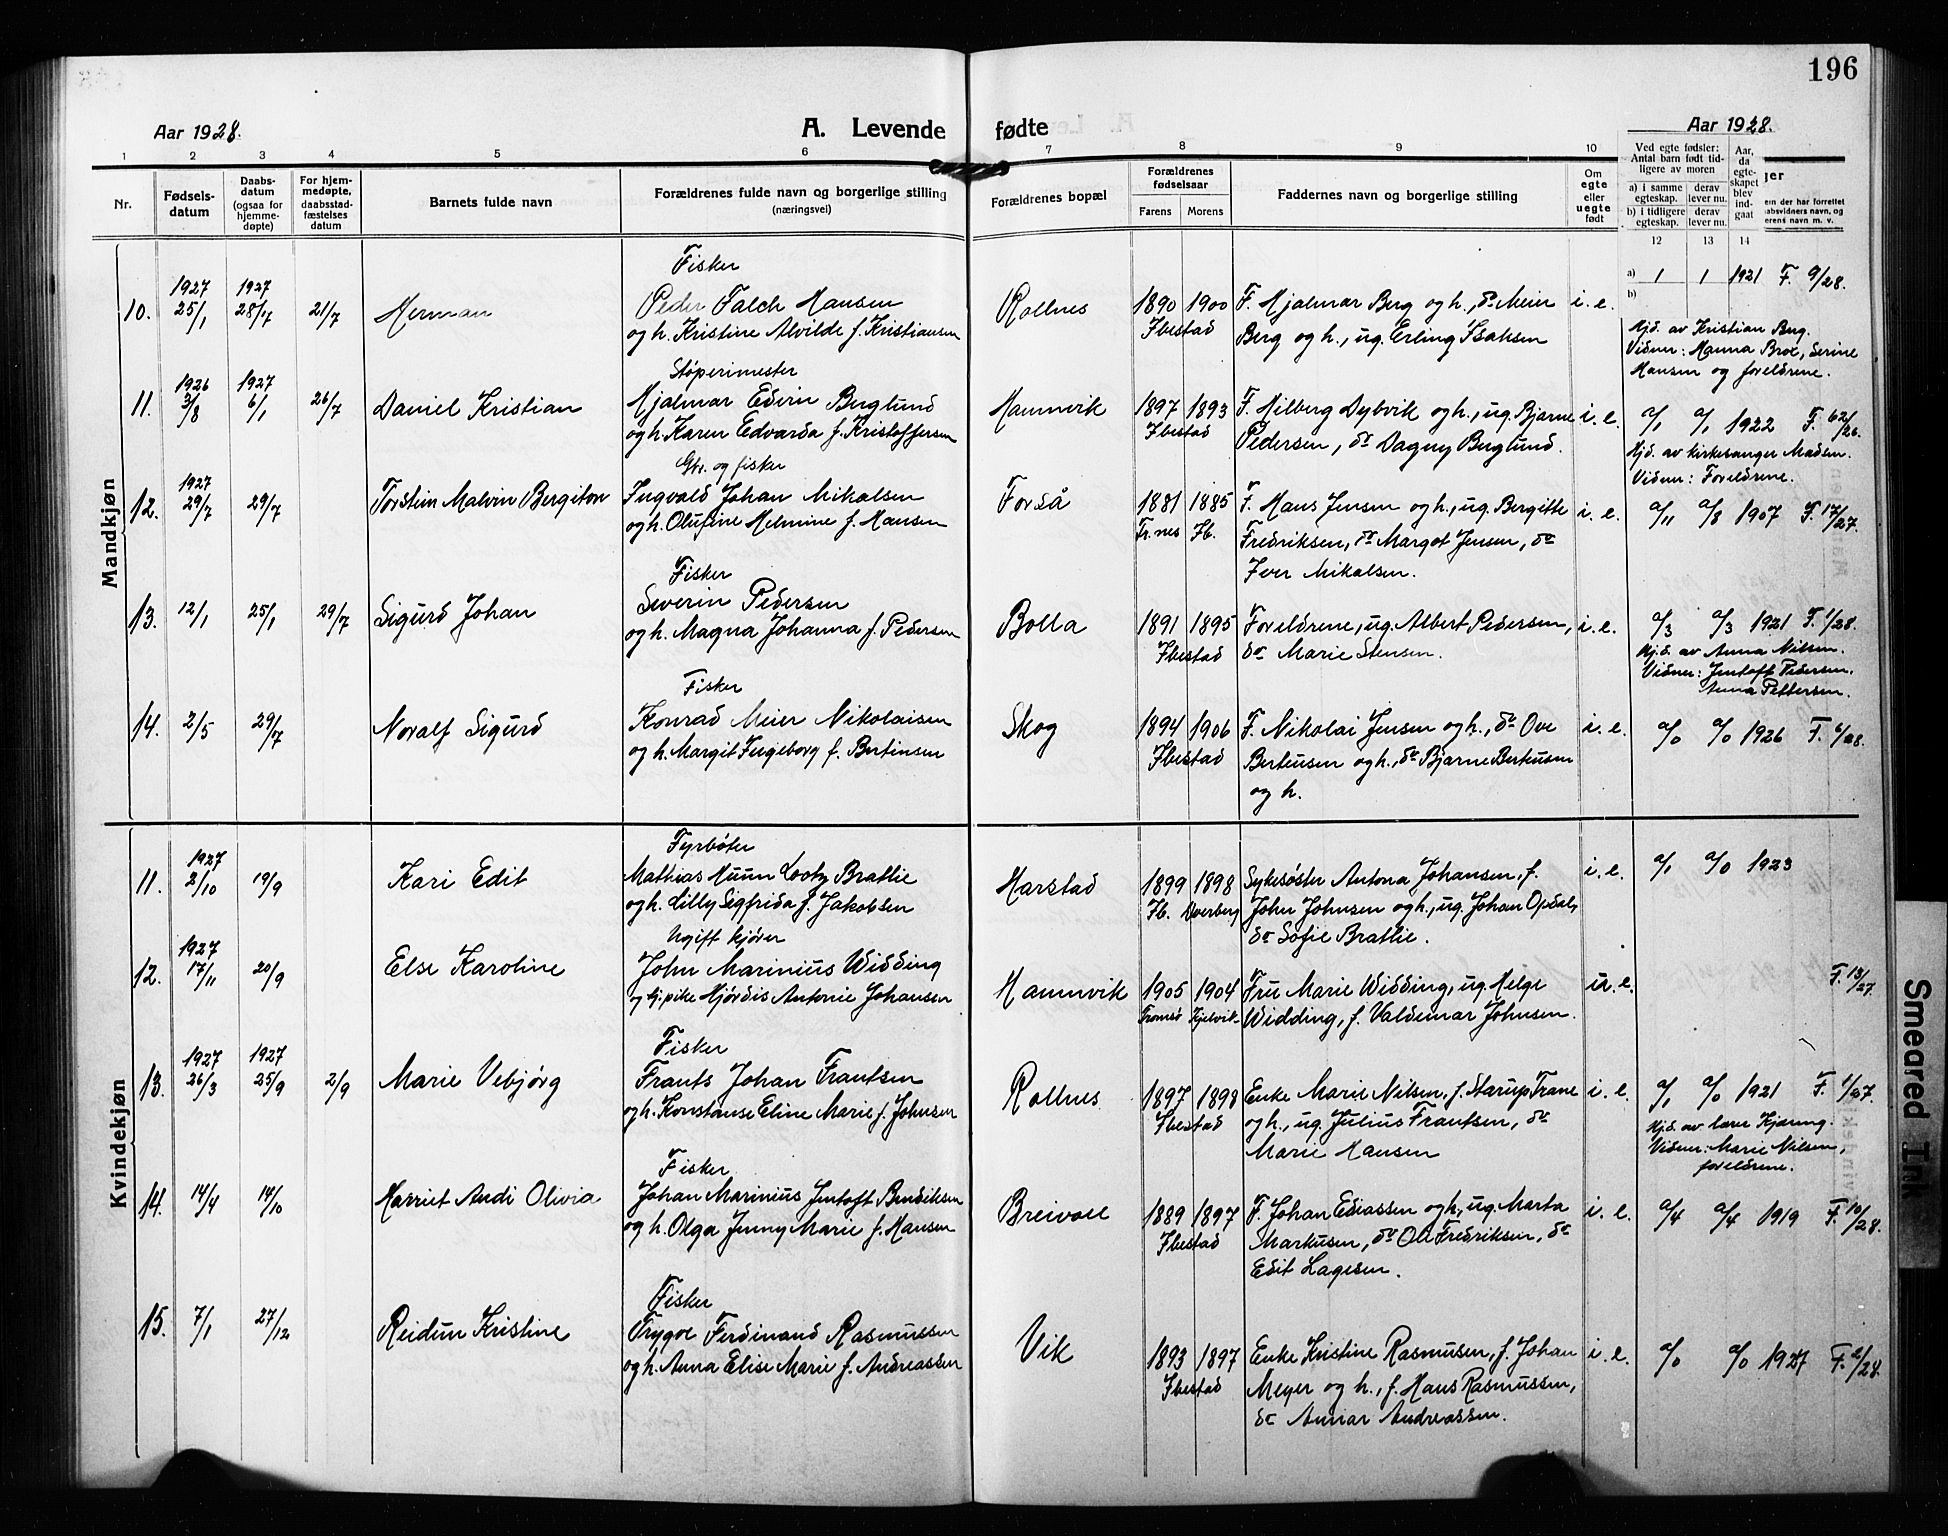 196
Aar 1928.
A. Levende
fødte
Aar 1928.
1 2 3 4 5 6 7 8 9 10 12 13 14
Nr.
Fødsels-
datum
Daabs-
datum
(ogsaa for
hjemme-
døpte)
For hjem-
medøpte,
daabsstad-
fæstelses
datum
Barnets fulde navn
Forældrenes fulde navn og borgerlige stilling
(næringsvei)
Forældrenes bopæl
Forældrenes
fødselsaar
Farens Morens
Faddernes navn og borgerlige stilling
Om
egte
eller
uegte
født
Ved egte fødsler:
Antal barn født tid-
ligere av moren
a) i samme
egteskap.
derav
lever nu.
b) i tidligere
egteskap.
derav
lever nu.
Aar,
da
egte-
skapet
blev
ind-
gaat
Mandkjøn
10.
1927
25/1
1927
28/7
21/7
Herman
Fisker
Peder Falch Hansen
og h. Kristine Alvilde f. Kristiansen
Rollnes
1890 1900
Ibestad
F. Hjalmar Berg og h., do Meier
Berg og h., ug. Erling Isaksen
i. e.
a) 1 1 1921 F. 9/28.
b)
Hj.d. av Kristian Berg.
Vidner: Hanna Broe, Serine
Hansen og foreldrene.
11.
1926
3/8
1927
6/1
26/7
Daniel Kristian
Støperimester
Hjalmar Edvin Berglund
og h. Karen Edvarda f. Kristoffersen
Hamnvik
1897 1893
Ibestad
F. Hilberg Dybvik og h., ug. Bjarne
Pedersen, do Dagny Berglund.
i. e.
a/1 a/1 1922 F. 62/26.
Hj.d. av kirkesanger Madsen.
Vidner: Foreldrene.
12.
1927
29/7
29/7
Torstein Malvin Bergiton
Gbr. og fisker
Ingvald Johan Mikalsen
og h. Olufine Helmine f. Hansen
Forså
1881 1885
Tr.nes Ib.
F. Hans Jensen og h., ug. Bergitte
Fredriksen, do Margot Jensen, do
Iver Mikalsen.
i. e.
a/11 a/8 1907 F. 17/27.
13.
12/1
25/1
29/7
Sigurd Johan
Fisker
Severin Pedersen
og h. Magna Johanna f. Pedersen
Bolla
1891 1895
Ibestad
Foreldrene, ug. Albert Pedersen,
do Marie Stensen.
i. e.
a/3 a/3 1921 F. 1/28.
Hj.d. av Anna Nilsen.
Vidner: Jentoft Pedersen.
Anna Pettersen.
14.
2/5
29/7
Noralf Sigurd
Fisker
Konrad Meier Nikolaisen
og h. Margit Ingeborg f. Bertinsen
Skog
1894 1906
Ibestad
F. Nikolai Jensen og h., do Ove
Berteusen og h., do Bjarne Berteusen
og h.
i. e.
a/0 a/0 1926 F. 6/28.
Kvindekjøn
11.
1927
2/10
19/9
Kari Edit
Fyrbøter
Mathias Huun Lootz Brattlie
og h. Lilly Sigfrida f. Jakobsen
Harstad
1899 1898
Ib. Dverberg
Sykesøster Antona Johansen, f.
John Johnsen og h., ug. Johan Opdal,
do Sofie Brattlie.
i. e.
a/1 a/0 1923
12.
1927
17/11
20/9
Else Karoline
Ugift kjører
John Marinius Widding
og Hjørdis Antonie Johansen
Hamnvik
1905 1904
Tromsø Kjelvik
Fru Marie Widding, ug. Helge
Widding, f. Valdemar Johnsen.
u. e.
F. 13/27.
13.
1927
26/3
1927
25/9
2/9
Marie Vebjørg
Fisker
Frants Johan Frantsen
og h. Konstanse Eline Marie f. Johnsen
Rollnes
1897 1898
Ibestad
Enke Marie Nilsen, f. Starup Trane
og h., ug. Julius Frantsen, do
Marie Hansen
i. e.
a/1 a/0 1921 F. 1/27.
Hj.d. av lærer Kjæreng.
Vidner: Marie Nilsen,
foreldrene.
14.
14/4
14/10
Harriet Andi Olivia
Fisker
Johan Marinius Jentoft Bendiksen
og h. Olga Jenny Marie f. Hansen
Breivoll
1889 1897
Ibestad
F. Johan Ediassen og h., ug. Marta
Markusen, do Ole Fredriksen, do
Edit Lagesen.
i. e.
a/4 a/4 1919 F. 10/28.
15.
7/1
27/12
Reidun Kristine
Fisker
Trygve Ferdinand Rasmussen
og h. Anna Elise Marie f. Andreassen
Vik
1893 1897
Ibestad
Enke Kristine Rasmusen, f. Johan
Meyer og h., f. Hans Rasmussen,
do Annar Andreassen.
i. e.
a/0 a/0 1927 F. 2/28.
Smeared Ink